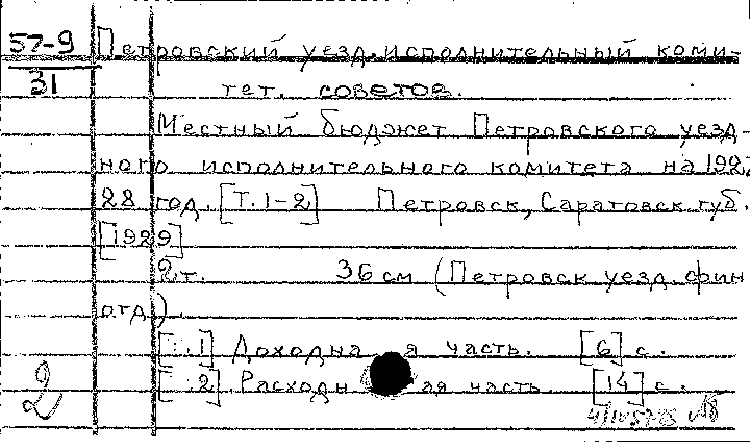 57-9
31
Петровский уезд. исполнительный коми-
тет. советов.
Местный бюджет Петровского уезд-
ного исполнительного комитета на 192
28 год. [Т.1-2] Петровск, Саратовск губ.
[1929]
2 т. 36 см (Петровск уезд. фин
отд)
[ .1] Доходна я часть. [6] с.
[ :2] Расходн ая часть [14] с.
2